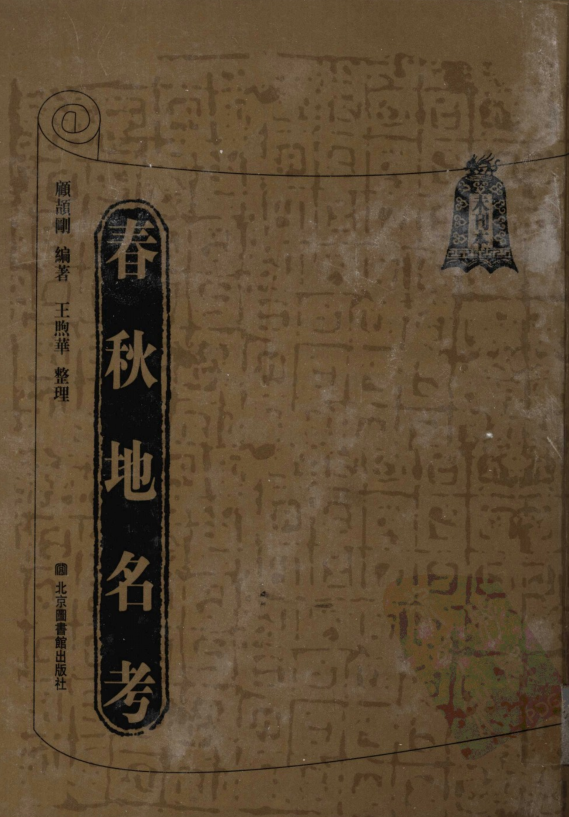 未刊本
春秋地名考
顧頡剛 編著 王煦華 整理
北京圖書館出版社